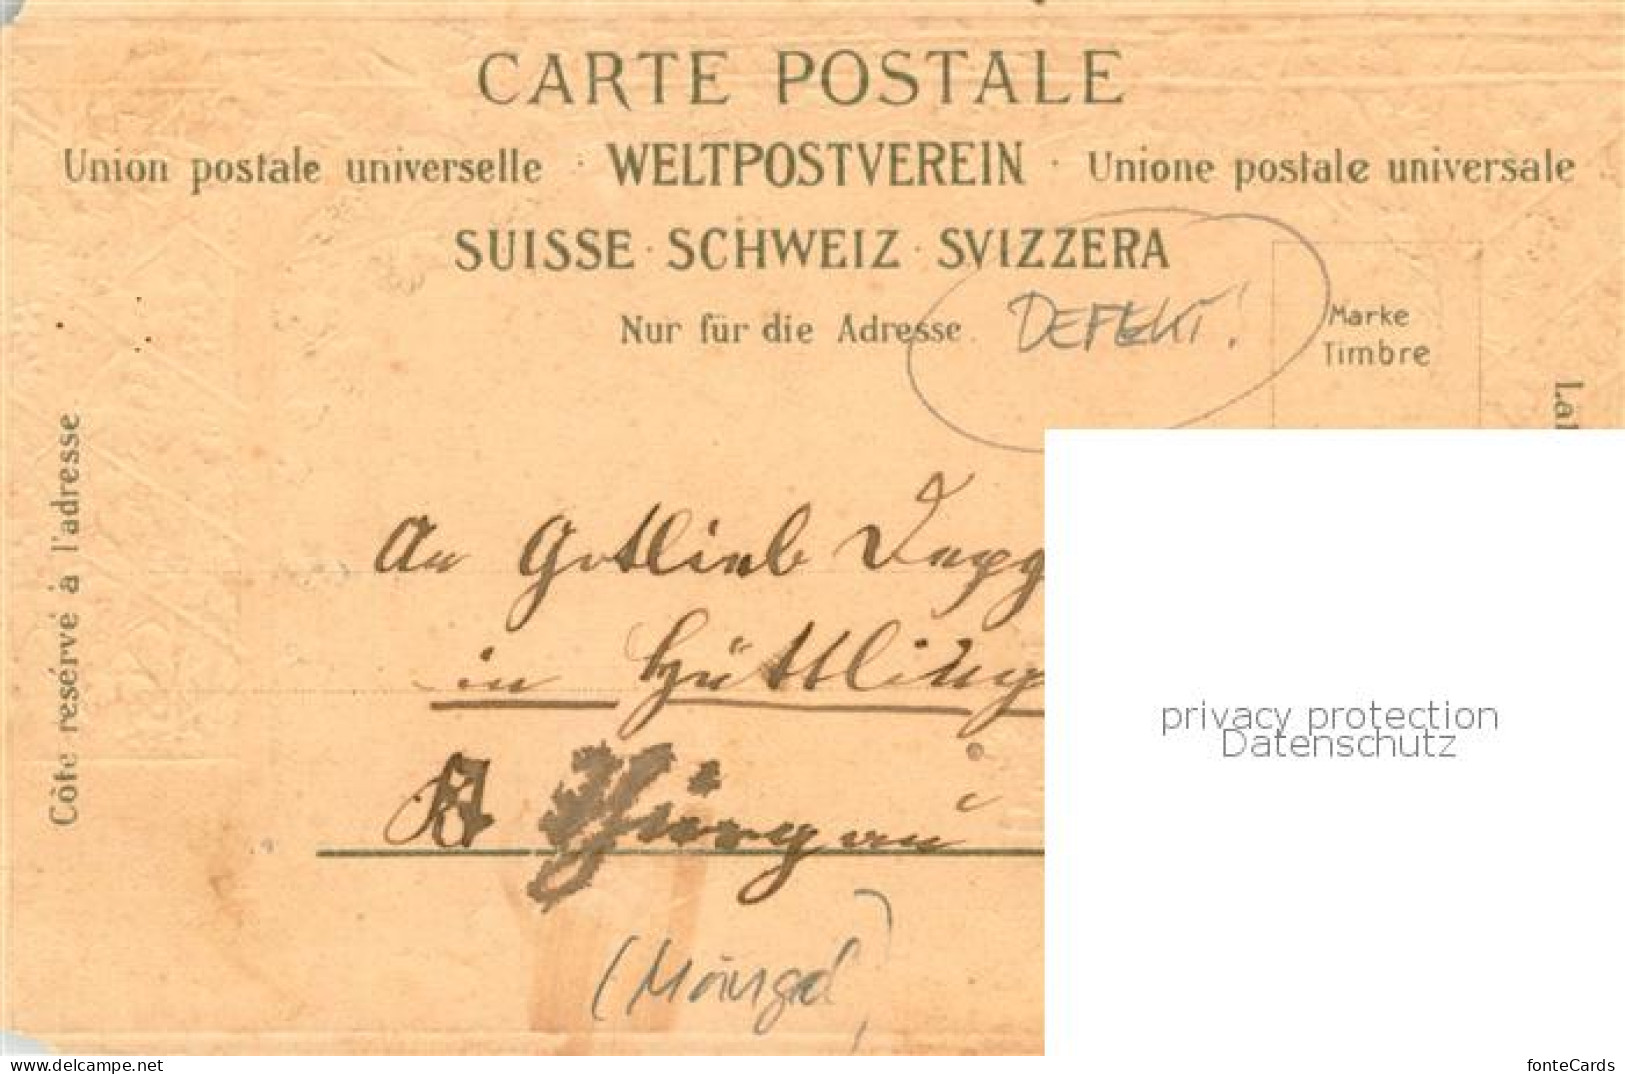 CARTE POSTALE
Union postale universelle · WELTPOSTVEREIN · Unione postale universale
SUISSE · SCHWEIZ · SVIZZERA
Nur für die Adresse
DEFEKT!
Marke
Timbre
Côte resérvé à l'adresse
An Gottlieb
in Hüttling
Kt Thurgau
(Mängel)
privacy protection
Datenschutz
www.delcampe.net
fonteCards